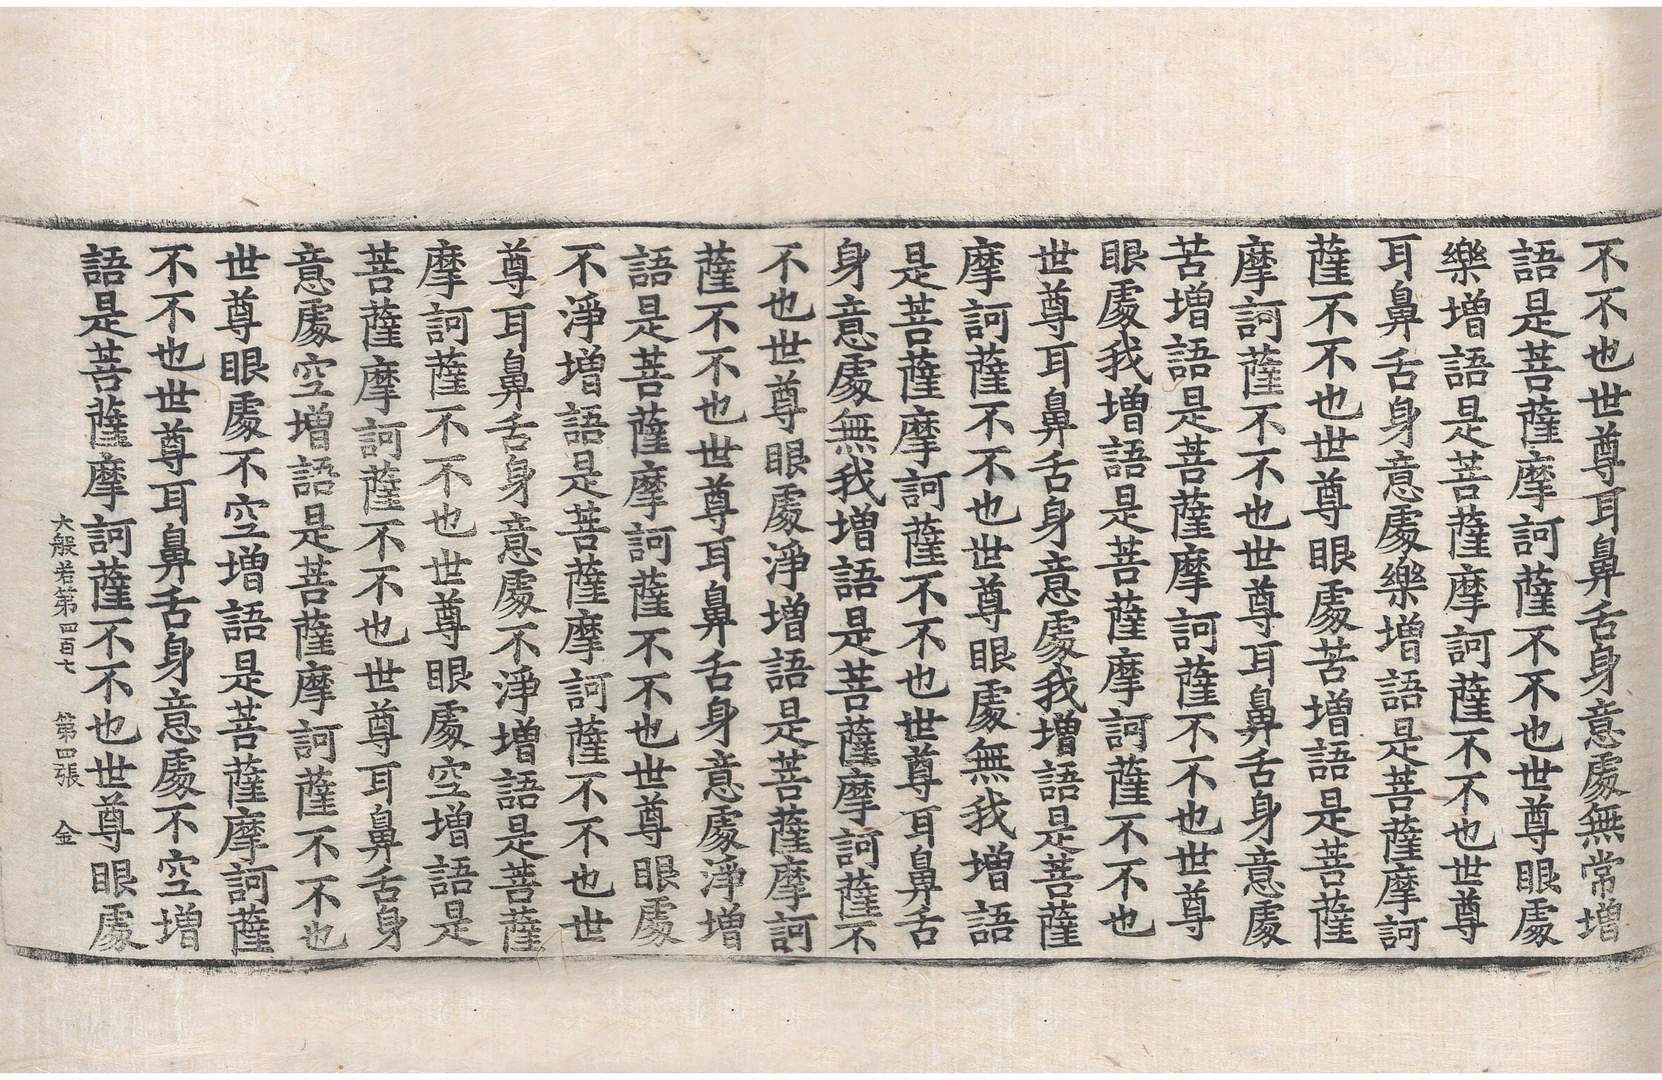 不不也世尊耳鼻舌身意處無常增
語是菩薩摩訶薩不不也世尊眼處
樂增語是菩薩摩訶薩不不也世尊
耳鼻舌身意處樂增語是菩薩摩訶
薩不不也世尊眼處苦增語是菩薩
摩訶薩不不也世尊耳鼻舌身意處
苦增語是菩薩摩訶薩不不也世尊
眼處我增語是菩薩摩訶薩不不也
世尊耳鼻舌身意處我增語是菩薩
摩訶薩不不也世尊眼處無我增語
是菩薩摩訶薩不不也世尊耳鼻舌
身意處無我增語是菩薩摩訶薩不
不也世尊眼處淨增語是菩薩摩訶
薩不不也世尊耳鼻舌身意處淨增
語是菩薩摩訶薩不不也世尊眼處
不淨增語是菩薩摩訶薩不不也世
尊耳鼻舌身意處不淨增語是菩薩
摩訶薩不不也世尊眼處空增語是
菩薩摩訶薩不不也世尊耳鼻舌身
意處空增語是菩薩摩訶薩不不也
世尊眼處不空增語是菩薩摩訶薩
不不也世尊耳鼻舌身意處不空增
語是菩薩摩訶薩不不也世尊眼處
大般若第四百七 第四張 金